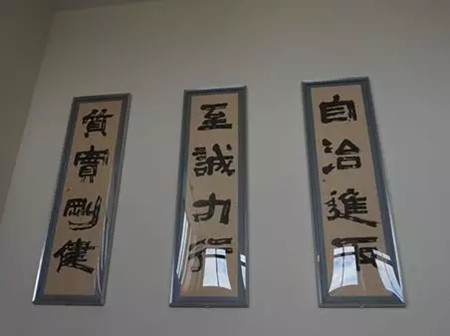 自治進取
至誠力行
質實剛健